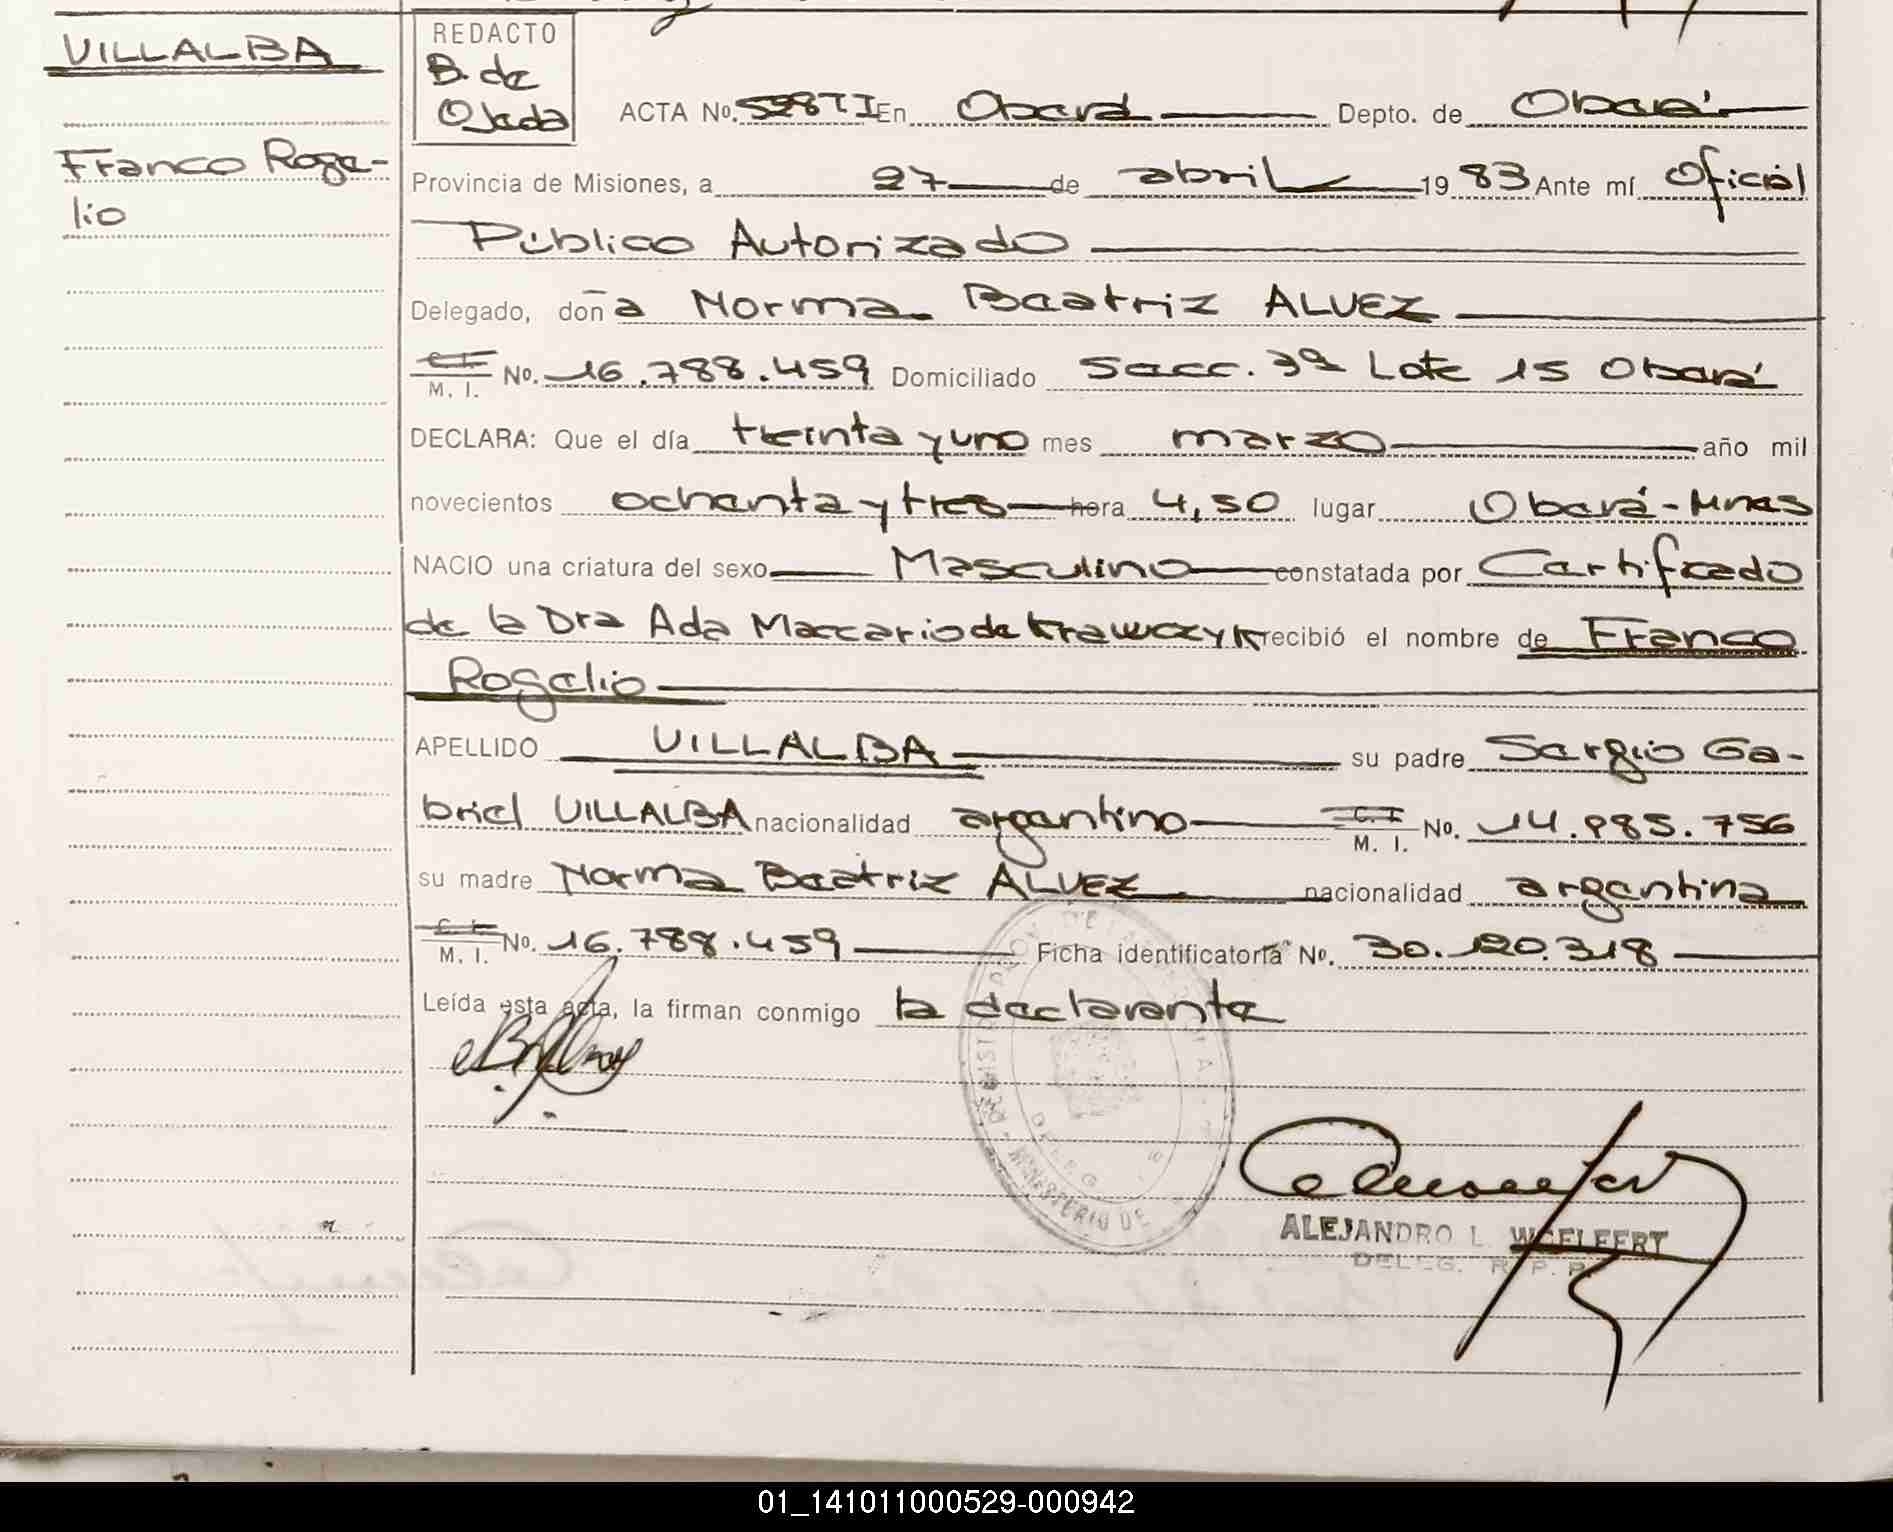 VILLALBA
Franco Roge-
lio
REDACTO
B. de
Ojeda
ACTA No. 528 T I En Oberá Depto. de Oberá
Provincia de Misiones, a 27 de abril 1983 Ante mí Oficial
Público Autorizado
Delegado, doña Norma Beatriz ALVEZ
C. I. M. I. No. 16.788.459 Domiciliado Secc. 3ª Lote 15 Oberá
DECLARA: Que el día treinta y uno mes marzo año mil
novecientos ochenta y tres hora 4,50 lugar Oberá-Mnes
NACIO una criatura del sexo Masculino constatada por Certificado
de la Dra Ada Maccario de Krawczyk recibió el nombre de Franco
Rogelio
APELLIDO VILLALBA su padre Sergio Ga-
briel VILLALBA nacionalidad argentino C. I. M. I. No. 14.985.756
su madre Norma Beatriz ALVEZ nacionalidad argentina
C. I. M. I. No. 16.788.459 Ficha identificatoria No. 30.120.318
Leída esta acta, la firman conmigo la declarante
MINISTERIO DE
ALEJANDRO L. WOELFERT
DELEG. R. P. P.
01_141011000529-000942